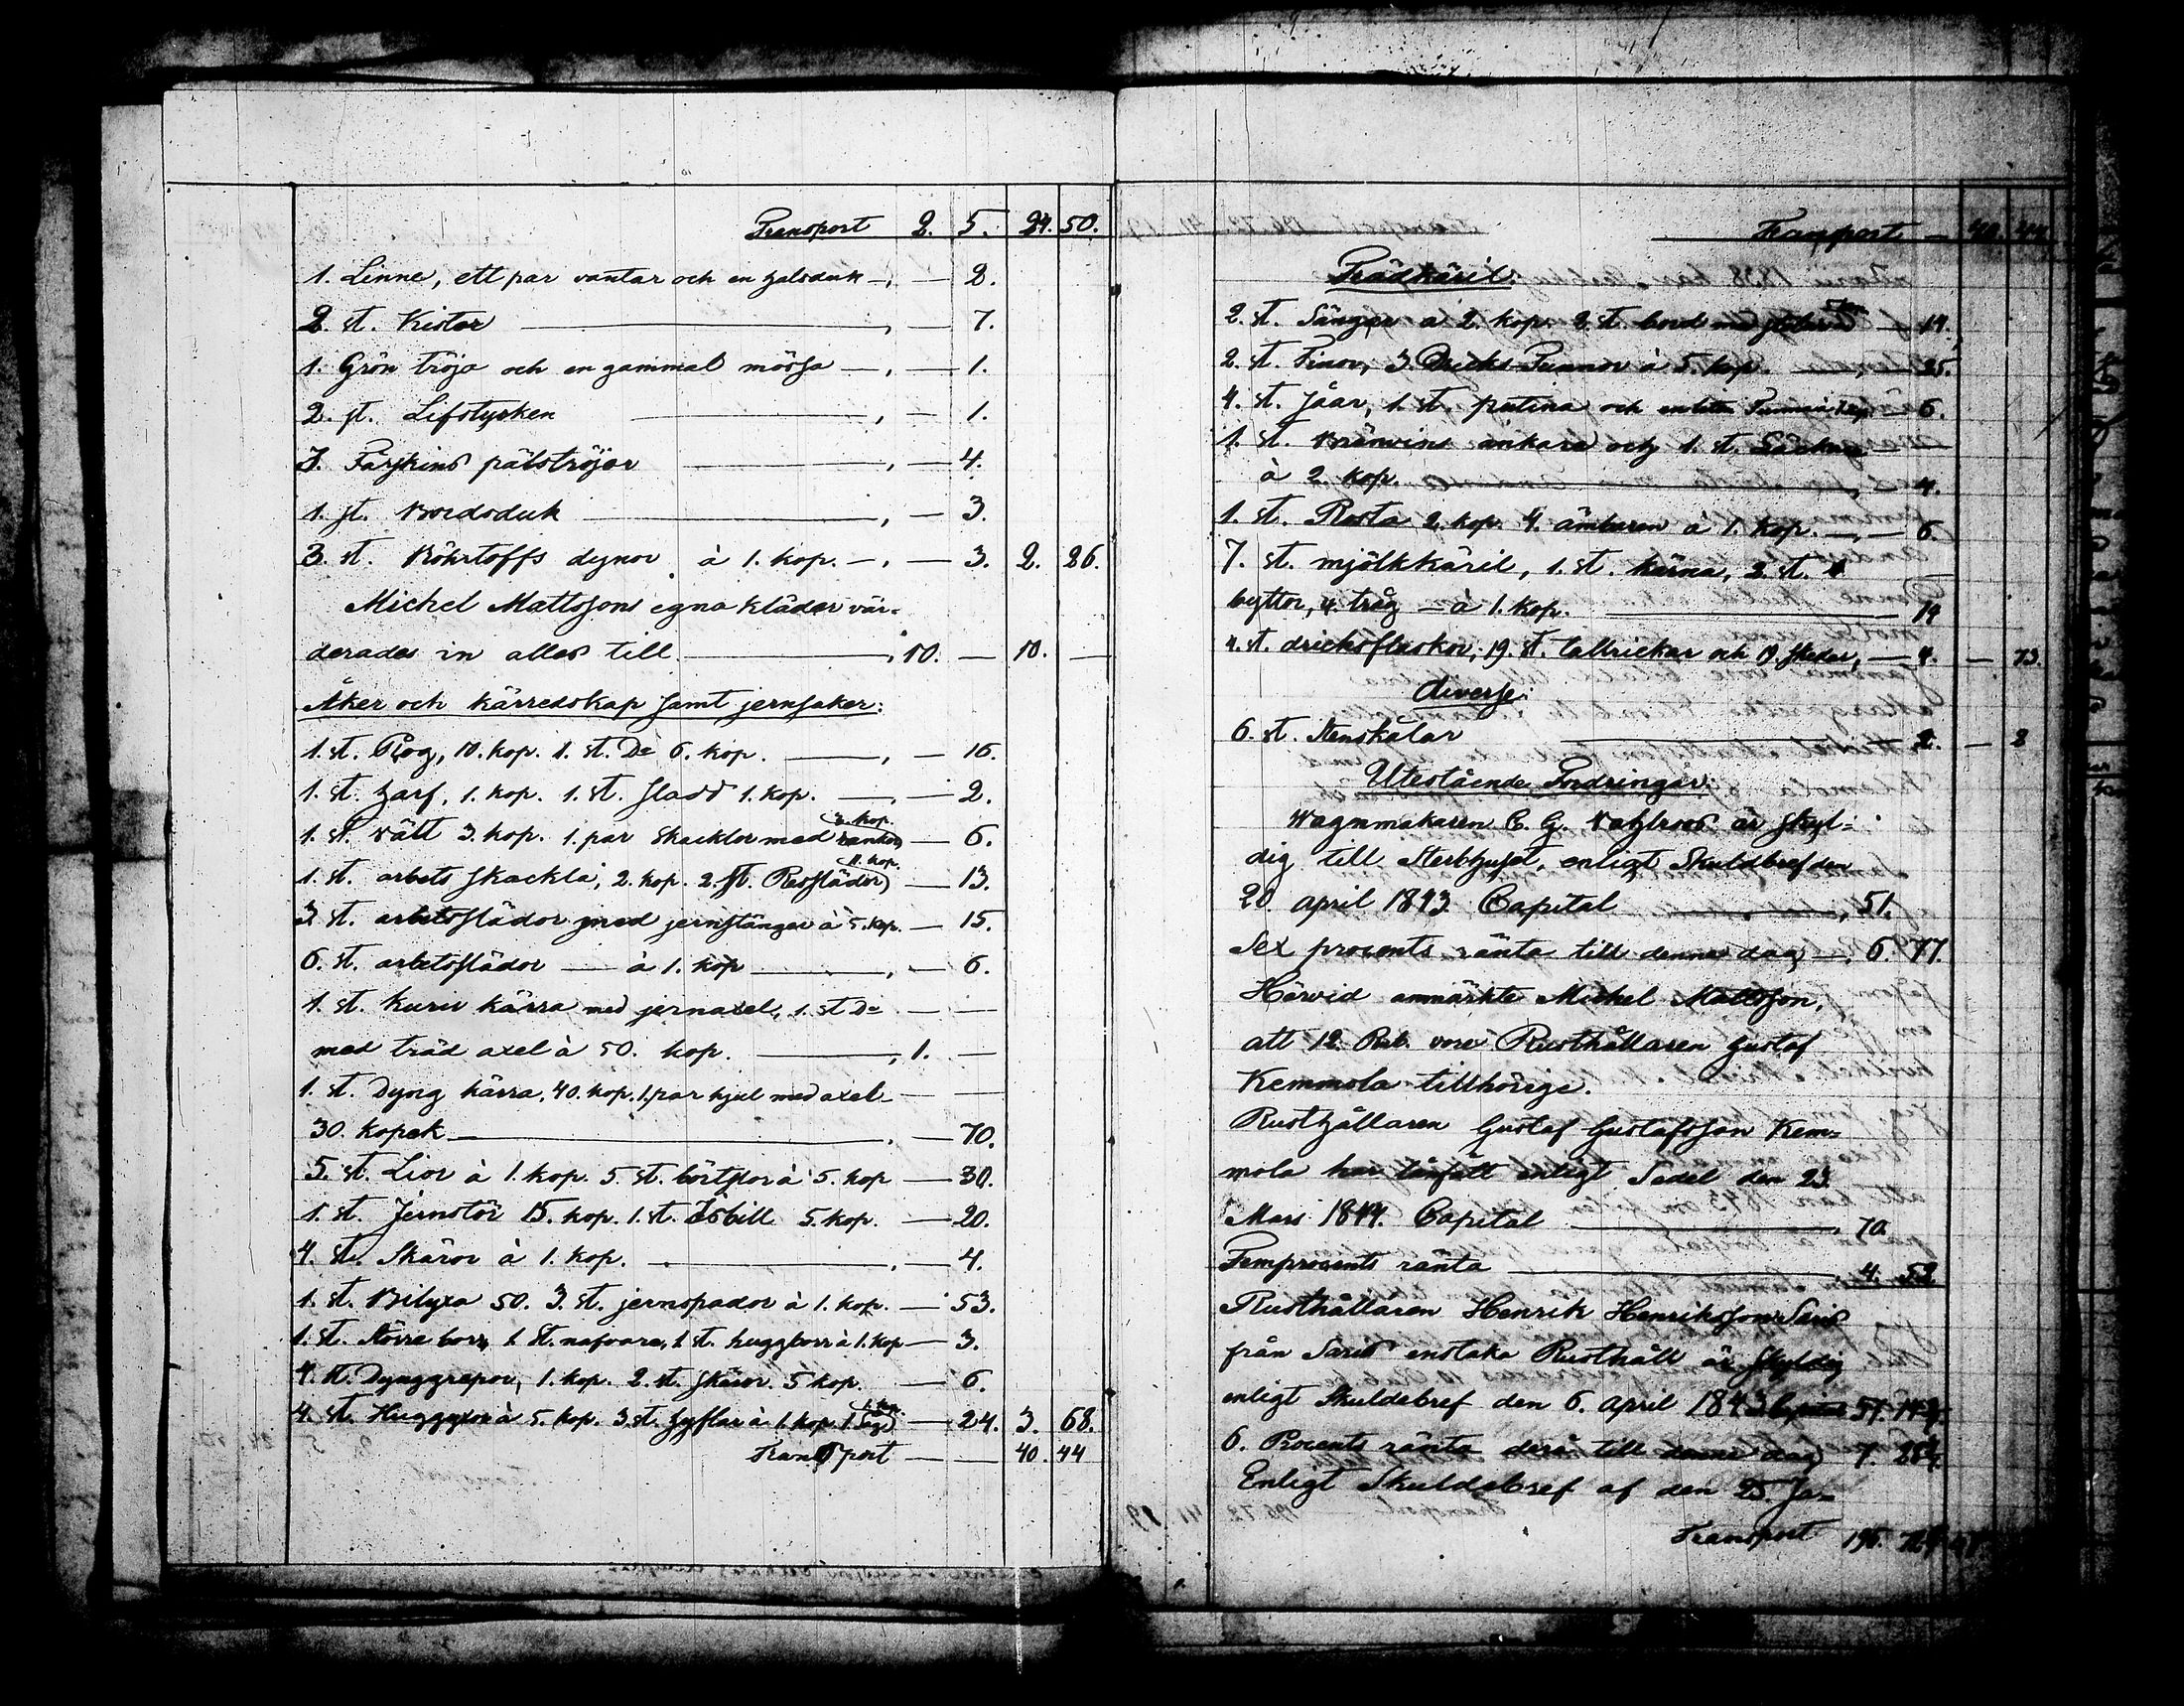 Transport 2. 5. 24. 50.
1. Linne, ett par vantar och en halsduk —, — 2.
2. st. Kistor —, — 7.
1. Grön tröja och en gammal mössa —, — 1.
2. st. Lifstycken —, — 1.
3. Fårskins pälströjor —, — 4.
1. st. Bordsduk —, — 3.
3. st. dynor à 1. kop. —, — 3. 2. 26.
Michel Mattsons egna kläder vär-
derades in alles till —, 10. — 10. —
Åker och kärredskap samt jernsaker:
1. st. Plog, 10. kop. 1. st. Do 6. kop. —, — 16.
1. st. harf, 1. kop. 1. st. sladd 1. kop. —, — 2.
1. st. vält 3. kop. 1. par skacklor med rankor 2. kop. — 6.
1. st. arbets skackla, 2. kop. 2. st. Reslädor 11. kop. — 13.
3 st. arbetsslädor med jernstänger à 5. kop. — 15.
6. st. arbetsslädor — à 1. kop —, — 6.
1. st. kurir kärra med jernaxel, 1. st Do — —
med träd axel à 50. kop. —, 1. —
1. st. Dyng kärra, 40. kop. 1. par hjul med axel — —
30. kopek —, — 70.
5. st. Lior à 1. kop. 5. st. à 5. kop — 30.
1. st. Jernstör 15. kop. 1. st. Isbill 5. kop. — 20.
4. st. Skäror à 1. kop. —, — 4.
1. st. Bilyxa 50. 3. st. jernspador à 1. kop. — 53.
1. st. större borr, 1 st. nafvare, 1 st. huggborr à 1. kop — 3.
4. st. Dynggrepor, 1. kop. 2. st. skäror. 5 kop. — 6.
4. st. Huggyxor à 5. kop. 3. st. hyflar à 1. kop. 1 Såg 1. kop. — 24. 3. 68.
Transport — — 40. 44
Transport — 40. 44.
Trädkäril:
2. st. Sängar a 2. kop. 2. st. bord med — 14.
2. st. Tinor, 3 Dricks Tunnor à 5. kop. — 25.
4. st. Såar, 1. st. putina och en liten — 6.
1. st. Bränvins ankare och 1. st.
à 2. kop. — 4.
1. st. Rosta 2. kop. 4. ämbaren à 1. kop. —, — 6.
7. st. mjölkkäril, 1. st. kärna, 2. st.
byttor, 4. tråg — à 1. kop. — 14
4. st. dricksflaskor, 19. st. tallrickar och 19. skedar, — 4. — 73.
Diverse:
6. st. Stenskålar — 2. — 2
Utestående Fordringar:
Wagnmakaren C. G. är skyl-
dig till Sterbhuset, enligt Skuldbref den
20. april 1843. Capital —, 51.
Sex procents ränta till denne dag —, 6. 77.
Härvid anmärkte Michel Mattsson,
att 12. Rub. vore Rusthållaren Gustaf
Kemmola tillhörige.
Rusthållaren Gustaf Gustafsson Kem-
mola har lånfått enligt Sedel den 23.
Mars 1844. Capital —, 70.
Femprocents ränta —, 4. 52.
Rusthållaren Henrik Henriksson Saris
från Saris enstaka Rusthåll är skyldig
enligt Skuldebref den 6. april 1843 Capital 57. 14 2/7.
6. Procents ränta derå till denne dag 7. 28
Enligt Skuldebref af den 25 Ja-
Transport 196. 72